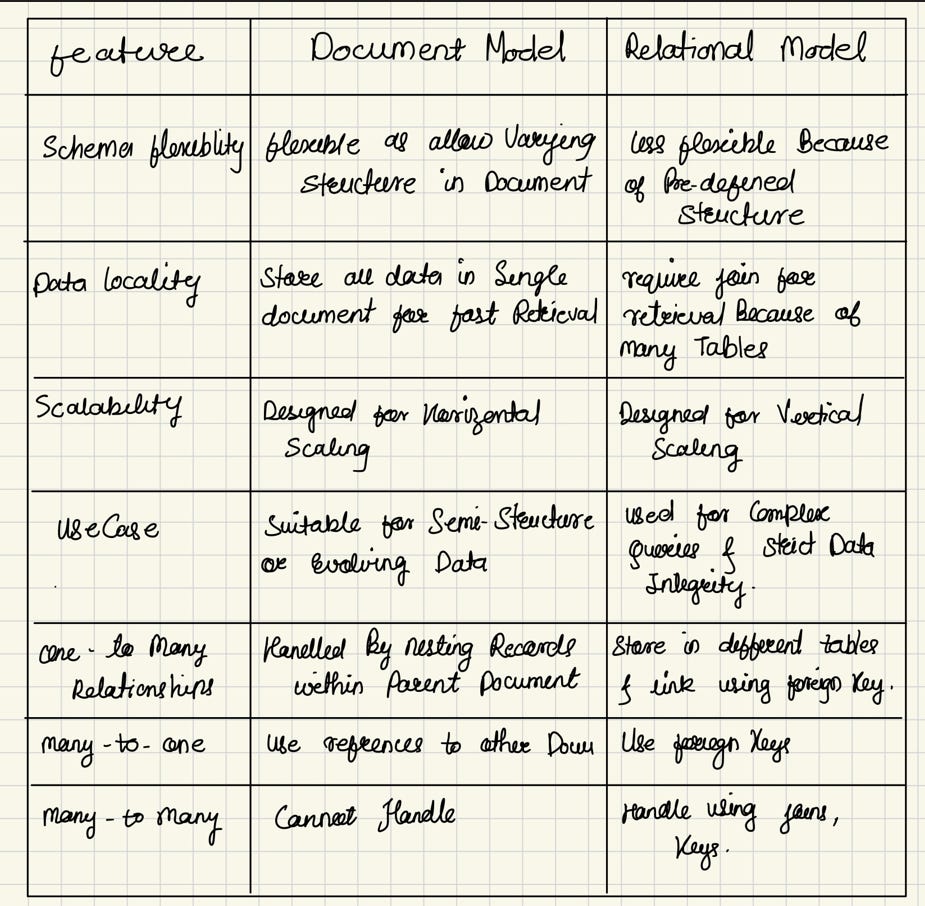 feature Document Model Relational Model
Schema flexiblity flexible as allow Varying less flexible Because
Structure in Document of Pre-defined
Structure
Data locality Store all data in Single require join for
document for fast Retrieval retrieval Because of
many Tables
Scalability Designed for Horizontal Designed for Vertical
Scaling Scaling
UseCase Suitable for Semi-Structure used for Complex
or Evolving Data Queries & Strict Data
Integrity.
one - to Many Hanelled By nesting Records Store in different tables
Relationships within Parent Document & link using foreign Key.
many -to- one Use refrences to other Use foreign Keys
many - to many Cannot Handle Handle using joins,
Keys.